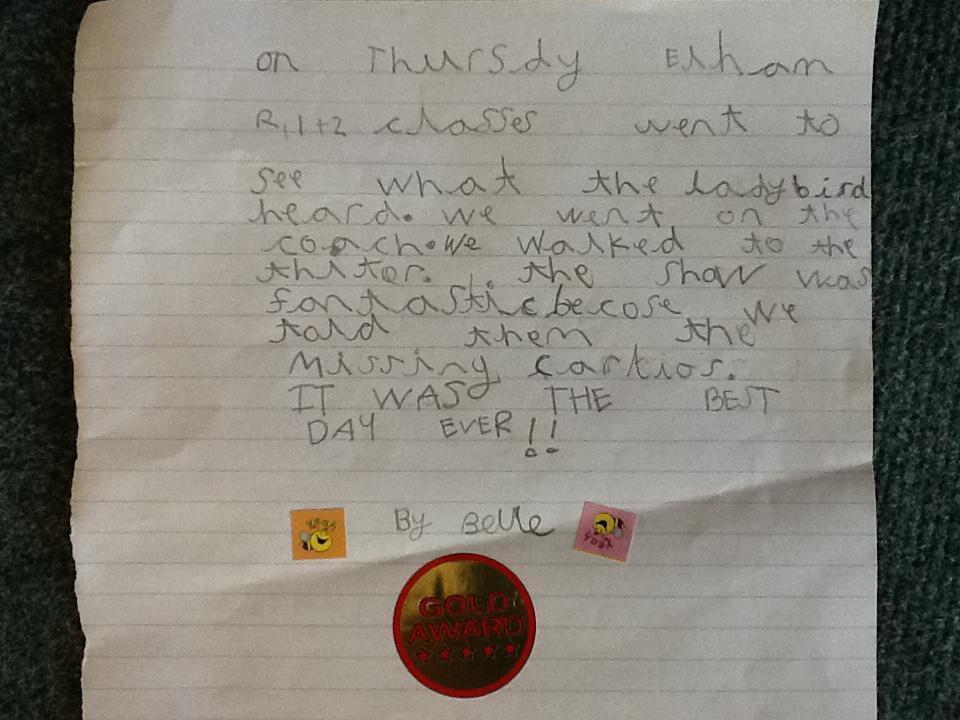 on Thursdy Elham
R,1+2 classes went to
see what the ladybird
heard. we went on the
coach. We walked to the
thitor. the show was
fantastic becose we
told them the
missing cartios.
IT WAS THE BEST
DAY EVER!!
By Belle
GOLD
AWARD